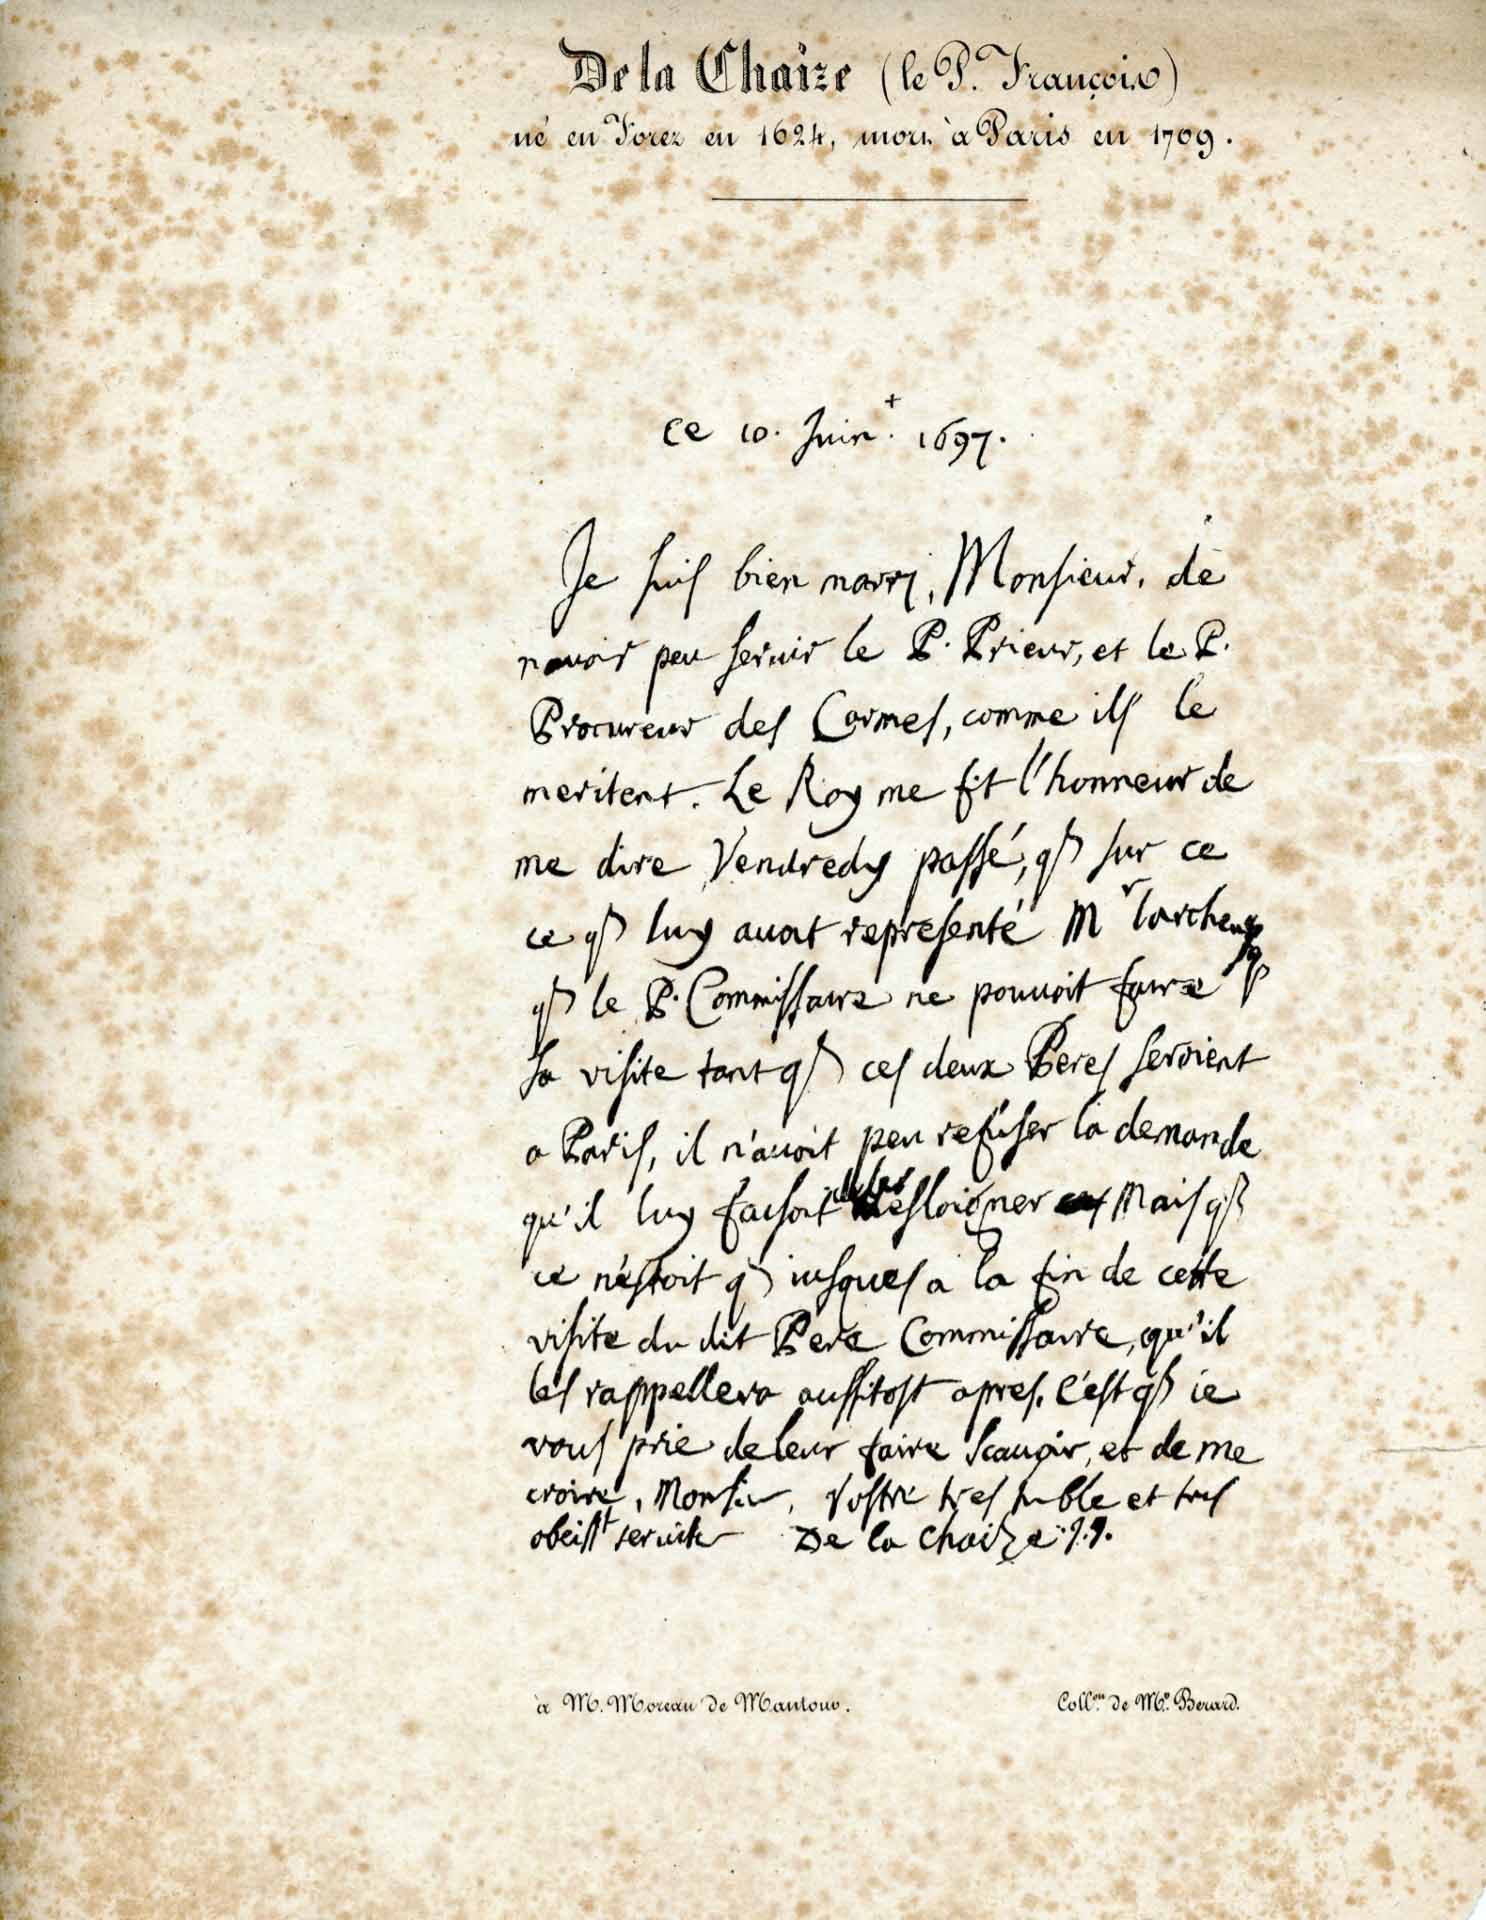 De la Chaize (le P. François)
né en Forez en 1624, mort à Paris en 1709.
+
ce 10. Juin. 1697.
Je suis bien marri, Monsieur, de
navoir peu servir le P. Prieur, et le P.
Procureur des Carmes, comme ils le
meritent. Le Roy me fit l'honneur de
me dire Vendredy passé, q, sur ce
ce q, luy avoit representé Mr
q, le P. Commissaire ne pouvoit faire
sa visite tant q, ces deux Peres seroient
a Paris, il n'avoit peu refuser la demande
qu'il luy faisoit esloigner Mais q,
ce n'estoit q, iusques a la fin de cette
visite du dit Pere Commissaire, qu'il
les rappellera aussitost apres. C'est q, ie
vous prie de leur faire scauoir, et de me
croire, Monsieur, Vostre tres humble et tres
obeisst seruiteur De la Chaize .J.J.
à M. Moreau de Mantour. Collon de Mr. Berard.